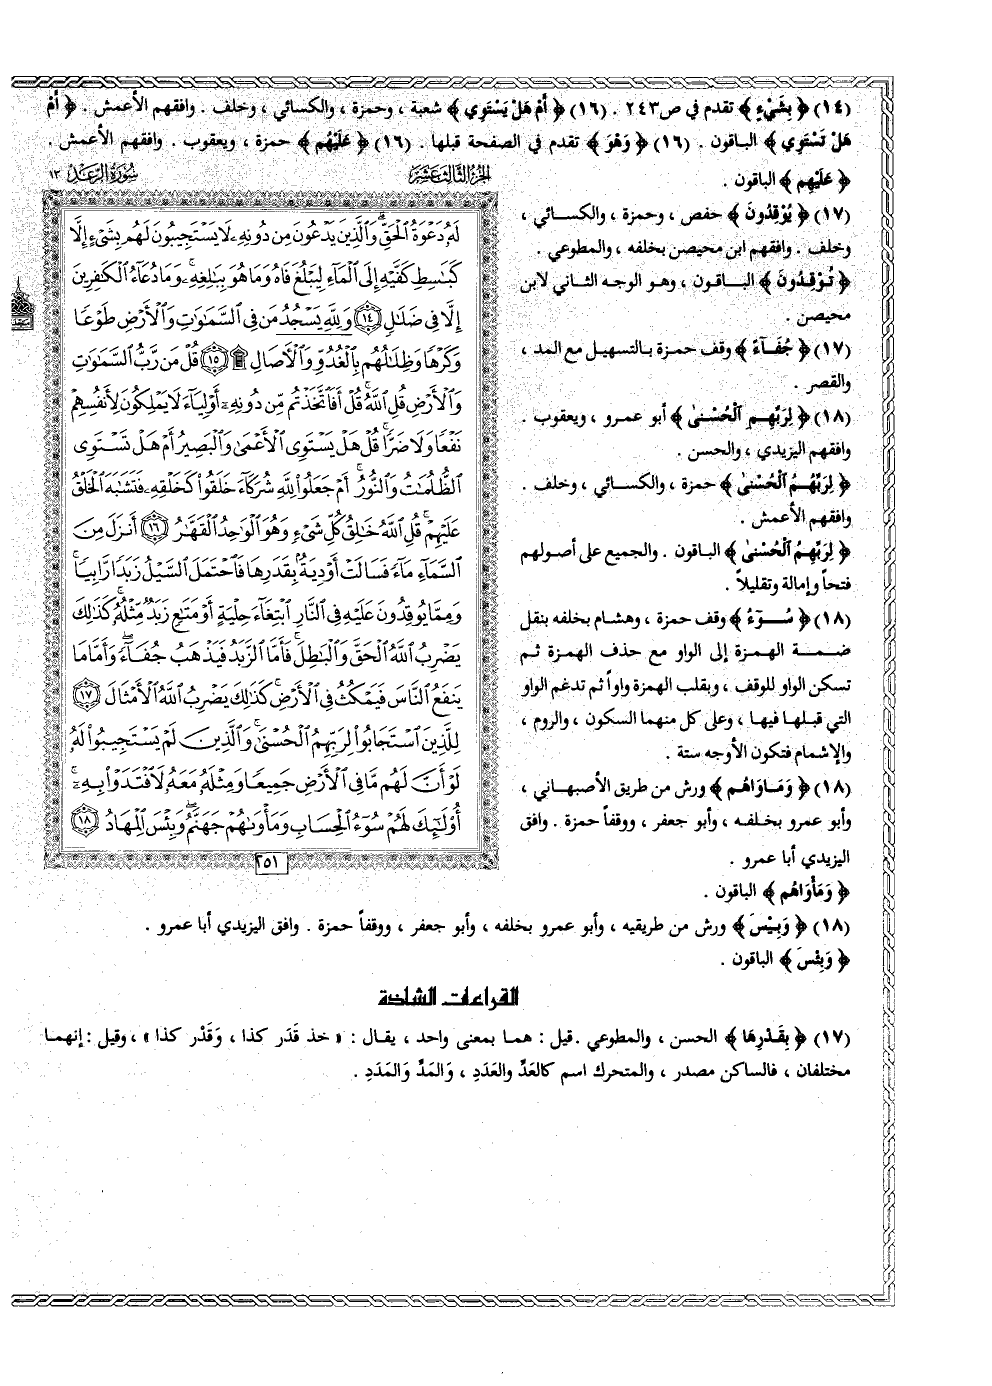 (١٤) ﴿ بِشَيْءٍ ﴾ تقدم في ص٢٤٣ . (١٦) ﴿ أَمْ هَلْ يَسْتَوِي ﴾ شعبة ، وحمزة ، والكسائي ، وخلف . وافقهم الأعمش . ﴿ أَمْ
هَلْ تَسْتَوِي ﴾ الباقون . (١٦) ﴿ وَهْوَ ﴾ تقدم في الصفحة قبلها . (١٦) ﴿ عَلَيْهُم ﴾ حمزة ، ويعقوب . وافقهم الأعمش .
﴿ عَلَيْهِم ﴾ الباقون .
(١٧) ﴿ يُوْقِدُونَ ﴾ حفص ، وحمزة ، والكسائي ،
وخلف . وافقهم ابن محيصن بخلفه ، والمطوعي .
﴿ تُوْقِدُونَ ﴾ الباقون ، وهو الوجه الثاني لابن
محيصن .
(١٧) ﴿ جُفَآءً ﴾ وقف حمزة بالتسهيل مع المد ،
والقصر .
(١٨) ﴿ لِرَبِّهِمِ ٱلْحُسْنىٰ ﴾ أبو عمرو ، ويعقوب .
وافقهم اليزيدي ، والحسن .
﴿ لِرَبِّهُمُ ٱلْحُسْنىٰ ﴾ حمزة ، والكسائي ، وخلف .
وافقهم الأعمش .
﴿ لِرَبِّهِمُ ٱلْحُسْنىٰ ﴾ الباقون . والجميع على أصولهم
فتحاً وإمالة وتقليلاً .
(١٨) ﴿ سُوٓءُ ﴾ وقف حمزة ، وهشام بخلفه بنقل
ضمة الهمزة إلى الواو مع حذف الهمزة ثم
تسكن الواو للوقف ، وبقلب الهمزة واواً ثم تدغم الواو
التي قبلها فيها ، وعلى كل منهما السكون ، والروم ،
والإشمام فتكون الأوجه ستة .
(١٨) ﴿ وَمَاوَاهُم ﴾ ورش من طريق الأصبهاني ،
وأبو عمرو بخلفه ، وأبو جعفر ، ووقفاً حمزة . وافق
اليزيدي أبا عمرو .
﴿ وَمَأْوَاهُم ﴾ الباقون .
الجزء الثالث عشر
سورة الرعد ١٣
لَهُۥ دَعْوَةُ ٱلْحَقِّ ۖ وَٱلَّذِينَ يَدْعُونَ مِن دُونِهِۦ لَا يَسْتَجِيبُونَ لَهُم بِشَىْءٍ إِلَّا
كَبَٰسِطِ كَفَّيْهِ إِلَى ٱلْمَآءِ لِيَبْلُغَ فَاهُ وَمَا هُوَ بِبَٰلِغِهِۦ ۚ وَمَا دُعَآءُ ٱلْكَٰفِرِينَ
إِلَّا فِى ضَلَٰلٍ ١٤ وَلِلَّهِ يَسْجُدُ مَن فِى ٱلسَّمَٰوَٰتِ وَٱلْأَرْضِ طَوْعًا
وَكَرْهًا وَظِلَٰلُهُم بِٱلْغُدُوِّ وَٱلْءَاصَالِ ۩ ١٥ قُلْ مَن رَّبُّ ٱلسَّمَٰوَٰتِ
وَٱلْأَرْضِ قُلِ ٱللَّهُ ۚ قُلْ أَفَٱتَّخَذْتُم مِّن دُونِهِۦٓ أَوْلِيَآءَ لَا يَمْلِكُونَ لِأَنفُسِهِمْ
نَفْعًا وَلَا ضَرًّا ۚ قُلْ هَلْ يَسْتَوِى ٱلْأَعْمَىٰ وَٱلْبَصِيرُ أَمْ هَلْ تَسْتَوِى
ٱلظُّلُمَٰتُ وَٱلنُّورُ ۗ أَمْ جَعَلُوا۟ لِلَّهِ شُرَكَآءَ خَلَقُوا۟ كَخَلْقِهِۦ فَتَشَٰبَهَ ٱلْخَلْقُ
عَلَيْهِمْ ۚ قُلِ ٱللَّهُ خَٰلِقُ كُلِّ شَىْءٍ وَهُوَ ٱلْوَٰحِدُ ٱلْقَهَّٰرُ ١٦ أَنزَلَ مِنَ
ٱلسَّمَآءِ مَآءً فَسَالَتْ أَوْدِيَةٌۢ بِقَدَرِهَا فَٱحْتَمَلَ ٱلسَّيْلُ زَبَدًا رَّابِيًا ۚ
وَمِمَّا يُوقِدُونَ عَلَيْهِ فِى ٱلنَّارِ ٱبْتِغَآءَ حِلْيَةٍ أَوْ مَتَٰعٍ زَبَدٌ مِّثْلُهُۥ ۚ كَذَٰلِكَ
يَضْرِبُ ٱللَّهُ ٱلْحَقَّ وَٱلْبَٰطِلَ ۚ فَأَمَّا ٱلزَّبَدُ فَيَذْهَبُ جُفَآءً ۖ وَأَمَّا مَا
يَنفَعُ ٱلنَّاسَ فَيَمْكُثُ فِى ٱلْأَرْضِ ۚ كَذَٰلِكَ يَضْرِبُ ٱللَّهُ ٱلْأَمْثَالَ ١٧
لِلَّذِينَ ٱسْتَجَابُوا۟ لِرَبِّهِمُ ٱلْحُسْنَىٰ ۚ وَٱلَّذِينَ لَمْ يَسْتَجِيبُوا۟ لَهُۥ
لَوْ أَنَّ لَهُم مَّا فِى ٱلْأَرْضِ جَمِيعًا وَمِثْلَهُۥ مَعَهُۥ لَٱفْتَدَوْا۟ بِهِۦٓ ۚ
أُو۟لَٰٓئِكَ لَهُمْ سُوٓءُ ٱلْحِسَابِ وَمَأْوَىٰهُمْ جَهَنَّمُ ۖ وَبِئْسَ ٱلْمِهَادُ ١٨
٢٥١
(١٨) ﴿ وَبِيْسَ ﴾ ورش من طريقيه ، وأبو عمرو بخلفه ، وأبو جعفر ، ووقفاً حمزة . وافق اليزيدي أبا عمرو .
﴿ وَبِئْسَ ﴾ الباقون .
القراءات الشاذة
(١٧) ﴿ بِقَدْرِهَا ﴾ الحسن ، والمطوعي . قيل : هما بمعنى واحد ، يقال : « خذ قَدَر كذا ، وَقَدْر كذا » ، وقيل : إنهما
مختلفان ، فالساكن مصدر ، والمتحرك اسم كالعَدِّ والعَدَدِ ، وَالمَدِّ وَالمَدَدِ .